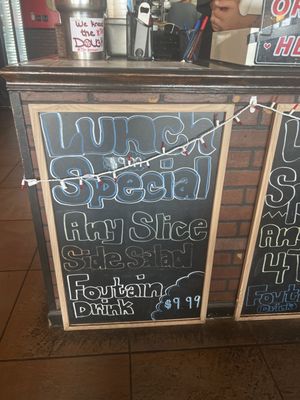 We knead the
Dough
OR
HE
Lunch
Special
Any Slice
Side Salad
Foutain
Drink $9.99
S
An
4T
Fout